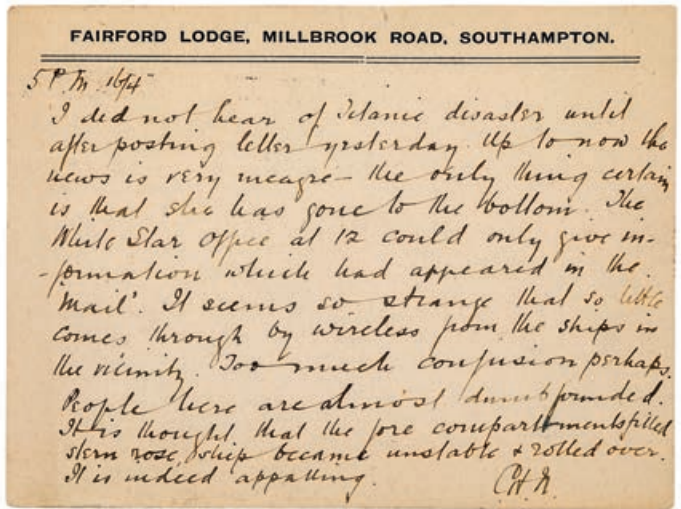 FAIRFORD LODGE, MILLBROOK ROAD, SOUTHAMPTON.
5 P.M. 16/4
I did not hear of Titanic disaster until
after posting letter yesterday. Up to now the
news is very meagre – the only thing certain
is that she has gone to the bottom. The
White Star Office at 12 could only give in-
-formation which had appeared in the
'Mail'. It seems so strange that so little
comes through by wireless from the ships in
the vicinity. Too much confusion perhaps.
People here are almost dumbfounded.
It is thought that the fore compartments filled
stern rose, ship became unstable & rolled over.
It is indeed appalling.